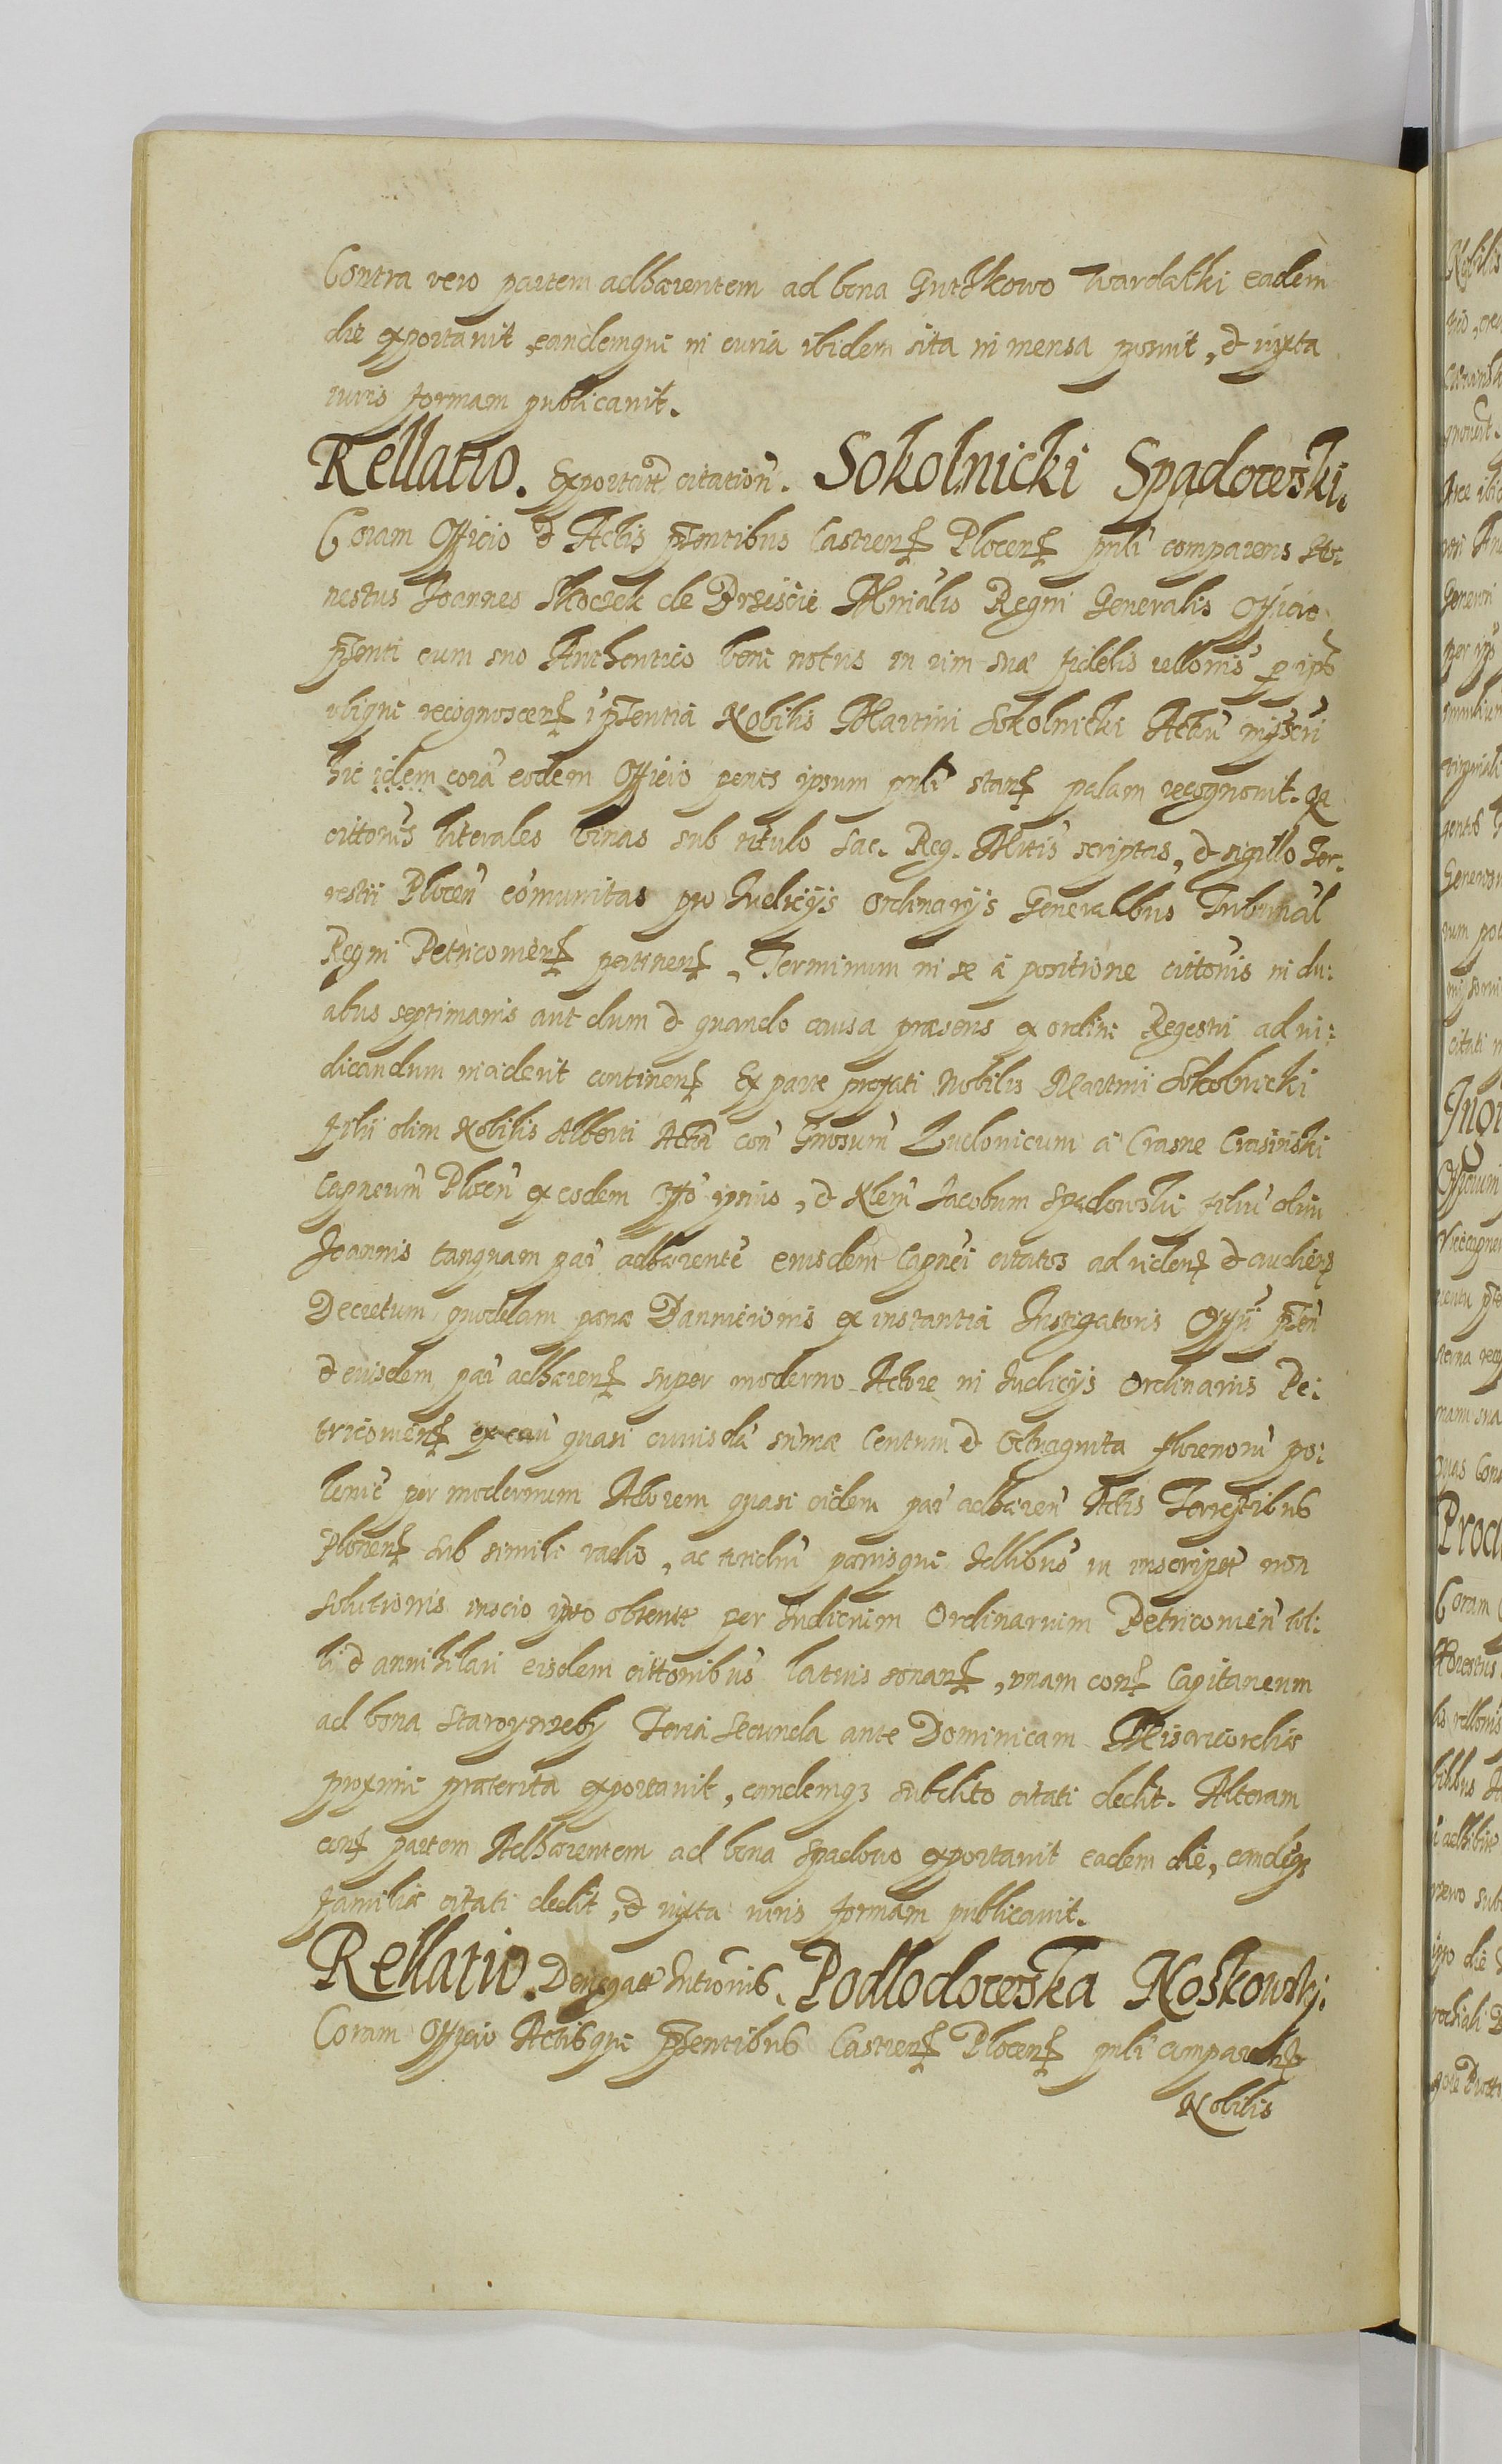 Contra vero partem adhærentem ad bona Gutkowo Twardalki eadem
die exportavit, eandemque in curia ibidem sita in mensa posuit, & iuxta
iuris formam publicavit.
Rellatio. Exportat citation. Sokolnicki Spądowski.
Coram Officio & Actis pntibus Castren Plocen pnlr comparens Ho:
nestus Joannes Skoczek de Drzeiscie Mnialis Regni Generalis Officio
pnti cum suo Authentico bene notus in vim suæ fidelis rellonis p ipm
ubique recognoscen i pntia Nobilis Martini Sokolnicki Actu
hic idem cora eodem Officio penes ipsum pnlr stan palam recognovit. Qa
cittonis literales binas sub titulo Sac. Reg. Mttis scriptas, & sigillo Ter:
restri Plocen comunitas pro Iudicijs Ordinarijs Generalibus Tribunal
Regni Petricovien pertinen, Terminum in se a positione cittonis in du:
abus septimanis aut dum & quando causa præsens ex ordine Regestri ad iu:
dicandum inciderit continen Ex parte prefati Nobilis Martini Sokolnicki
filii olim Nobilis Alberti Acta con Gnosum Ludovicum a Crasne Crasinski
Capneum Plocen ex eodem Offo ipsius, & Nlem Jacobum Spądowski filiu olim
Joannis tanquam par adhærente eiusdem Capnei citatos ad viden & audien
Decretum quoddam pænæ Bannicionis ex instantia Instigatoris Offii pntn
& eiusdem par adhæren super moderno Actore in Iudicijs Ordinariis Pe:
tricovien ex eau quasi cuiusda sumæ Centum & Octuaginta florenoru po:
lonic per modernum Actorem quasi eidem par adhæren Actis Terrestribus
Plocen sub simili vadio, ac aridiu pænisque Idlibus in inscript non
solutionis inscio ipso obtent per Iudicium Ordinarium Petricovien tol:
li & annihilari eisdem cittonibus latius sonan, unam con Capitaneum
ad bona Staroyzreby Feria Secunda ante Dominicam Misericordiæ
proxime præterita exportavit, eandemq subdito citati dedit. Alteram
con partem Adhærentem ad bona Spadowo exportavit eadem die, eandeq
familiæ citati dedit, & iuxta iuris formam publicavit.
Rellatio. Denegat Intronis. Podlodowska Noskowski.
Coram Officio Actisque pntibus Castren Plocen pnlr comparens
Nobilis